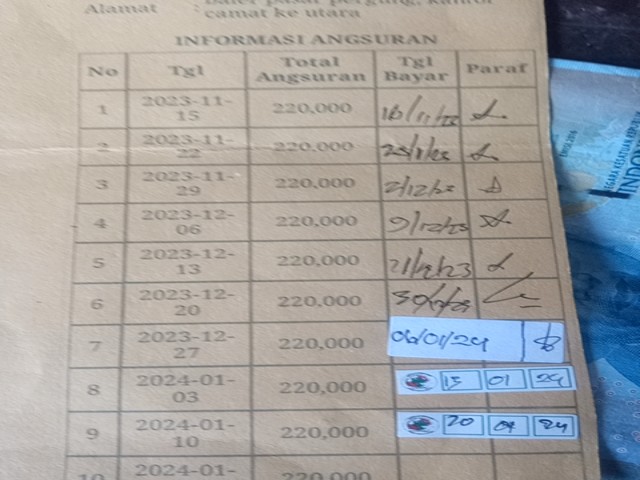 Alamat : Baler pasar pergung, kantor
camat ke utara
INFORMASI ANGSURAN
No Tgl Total Angsuran Tgl Bayar Paraf
1 2023-11-15 220,000 16/11/23
2 2023-11-22 220,000
3 2023-11-29 220,000 2/12/23
4 2023-12-06 220,000 9/12/23
5 2023-12-13 220,000 21/12/23
6 2023-12-20 220,000 30/12/23
7 2023-12-27 220,000 06/01/24
8 2024-01-03 220,000 15 01 24
9 2024-01-10 220,000 20 24
10 2024-01- 220,000